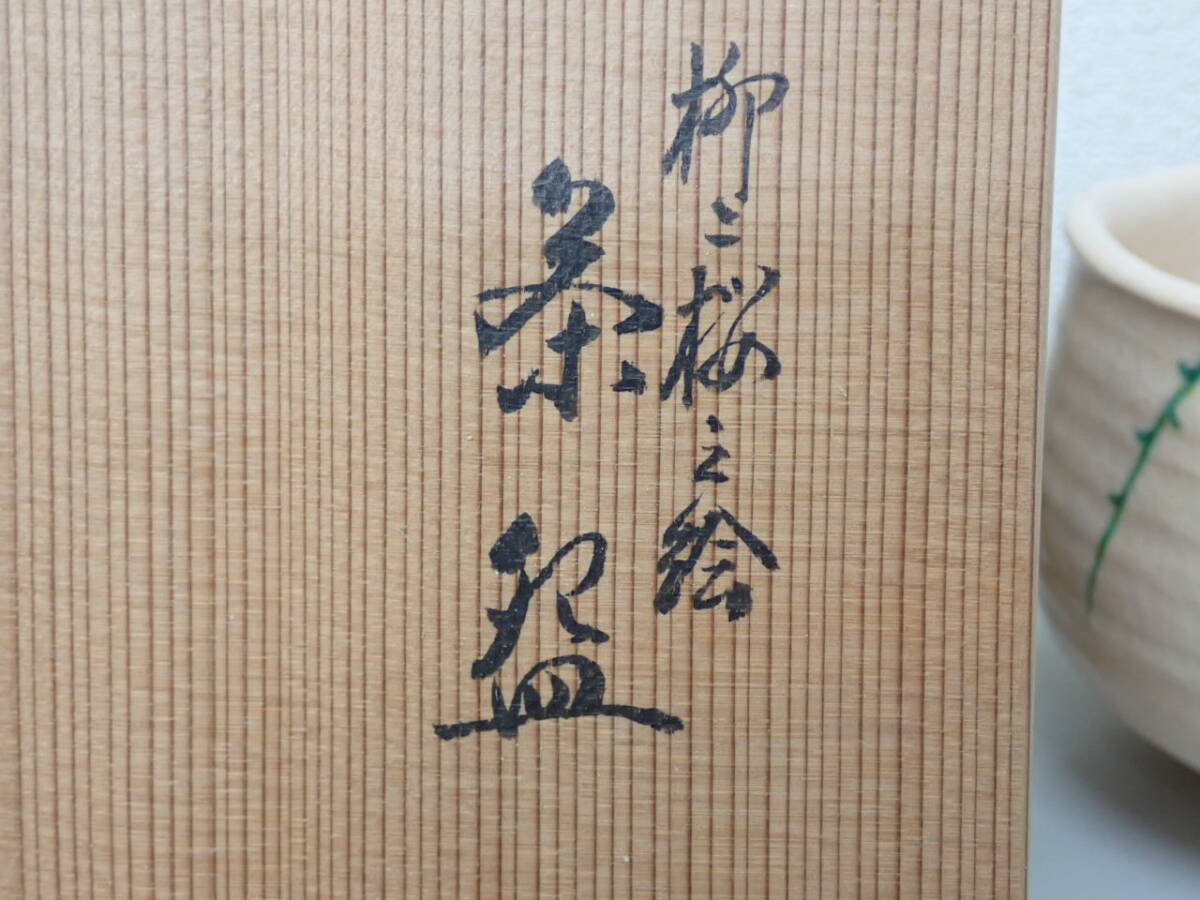 柳ニ桜之絵
茶盌